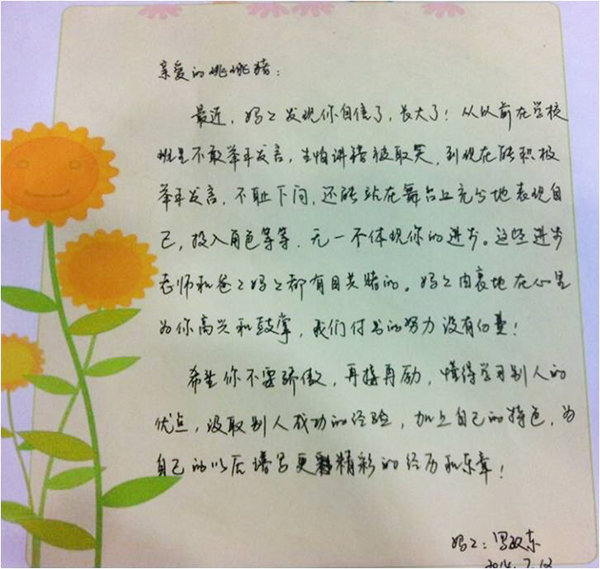 亲爱的姚姚猪：
最近，妈妈发现你自信了，长大了！从以前在学校
班里不敢举手发言，生怕讲错被取笑，到现在能积极
举手发言，不耻下问，还能站在舞台上充分地表现自
己，投入角色等等，无一不体现你的进步。这些进步
老师和爸爸妈妈都有目共睹的。妈妈由衷地在心里
为你高兴和鼓掌，我们付出的努力没有白费！
希望你不要骄傲，再接再励，懂得学习别人的
优点，汲取别人成功的经验，加上自己的特色，为
自己的以后谱写更精彩的经历和乐章！
妈妈：